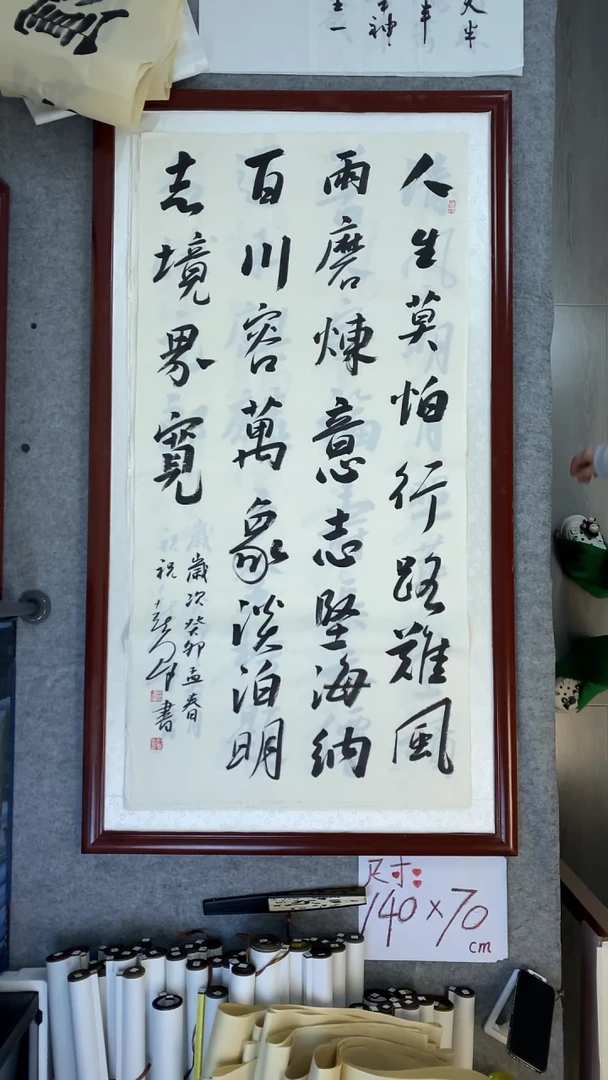 人生莫怕行路難風
雨磨煉意志堅海納
百川容萬象淡泊明
志境界寬
歲次癸卯孟春
祝
書
尺寸:
140×70
cm